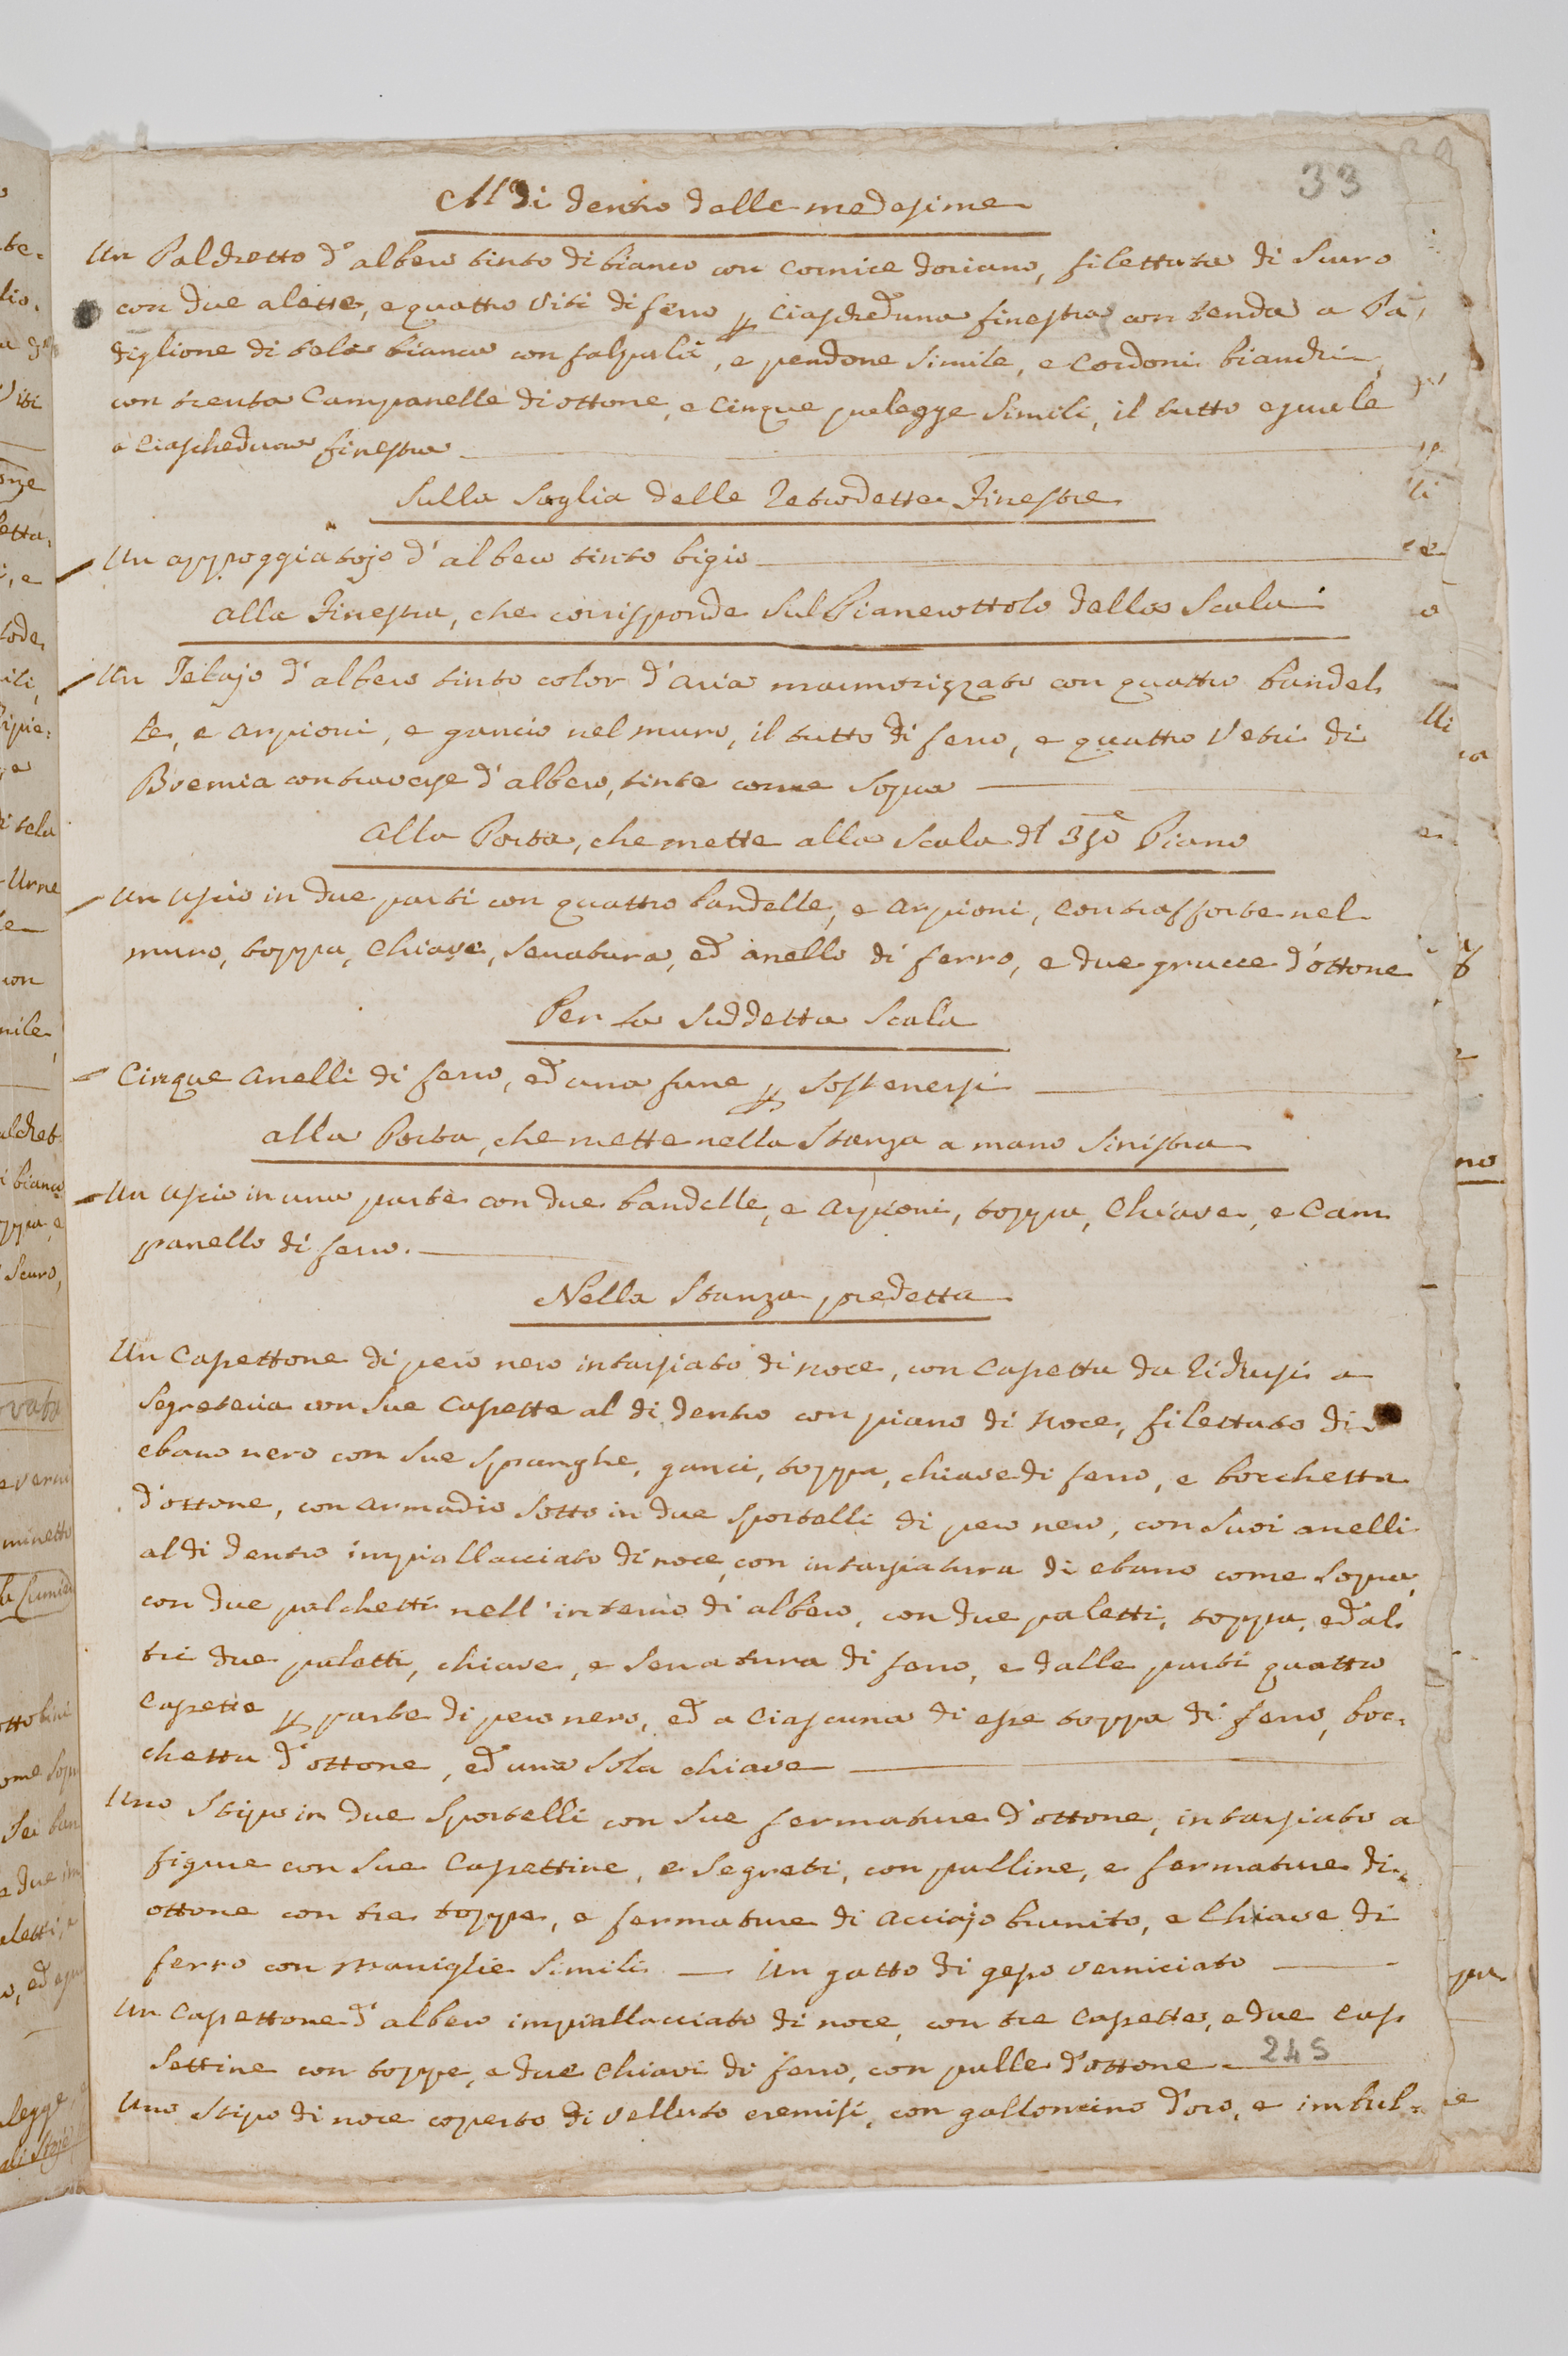 33
Al di dentro delle medesime
Un Palchetto d'albero tinto di bianco con Cornice d'oriano, filettata di Scuro
con due alette, e quattro Viti di ferro p ciascheduna finestra con tenda a Pa-
diglione di tela bianca con falpalà, e pendone simile, e Cordoni bianchi
con trenta Campanelle di ottone, e Cinque pulegge Simili, il tutto eguale
a ciascheduna finestra
Sulla Soglia delle Retrodette Finestre
Un appoggiatojo d'albero tinto bigio
alla Finestra, che corrisponde Sul Pianerottolo della Scala
Un Telajo d'albero tinto color d'aria marmorizzato con quattro bandel-
le, e arpioni, e gancio nel muro, il tutto di ferro, e quattro Vetri di
Boemia con traverse d'albero, tinte come Sopra
alla Porta, che mette alla Scala dl 3zo Piano
Un Uscio in due parti con quattro bandelle, e arpioni, contrafforte nel
muro, toppa, Chiave, Serratura, ed anello di ferro, e due grucce d'ottone
Per la Suddetta Scala
Cinque anelli di ferro, ed una fune p Sostenersi
alla Porta, che mette nella Stanza a mano Sinistra
Un Uscio in una parte con due bandelle, e arpioni, toppa, Chiave, e Cam-
panello di ferro.
Nella Stanza predetta
Un Casettone di pero nero intarsiato di noce, con Casetta da Ridursi a
Segreteria con Sue Casette al di dentro con piano di noce, filettato di
ebano nero con Sue Spranghe, ganci, toppa, chiave di ferro, e bocchetta
d'ottone, con armadio Sotto in due Sportelli di pero nero, con Suoi anelli
al di dentro impiallacciato di noce, con intarsiatura di ebano come Sopra,
con due palchetti nell'interno di albero, con due paletti, toppa, ed al-
tri due paletti, chiave, e Serratura di ferro, e dalle parti quattro
Casette p parte di pero nero, ed a Ciascuna di esse toppa di ferro, boc-
chetta d'ottone, ed una Sola chiave
Uno Stipo in due Sportelli con Sue fermature d'ottone, intarsiato a
figure con Sue Casettine, e Segreti, con palline, e fermature di
ottone con tre toppe, e fermature di acciajo brunito, e Chiave di
ferro con maniglie Simili — Un gatto di gesso verniciato
Un Casettone d'albero impiallacciato di noce, con tre Casette, e due Cas-
settine con toppe, e due Chiavi di ferro, con palle d'ottone
245
Uno Stipo di noce coperto di Velluto cremisi, con galloncino d'oro, e imbul-